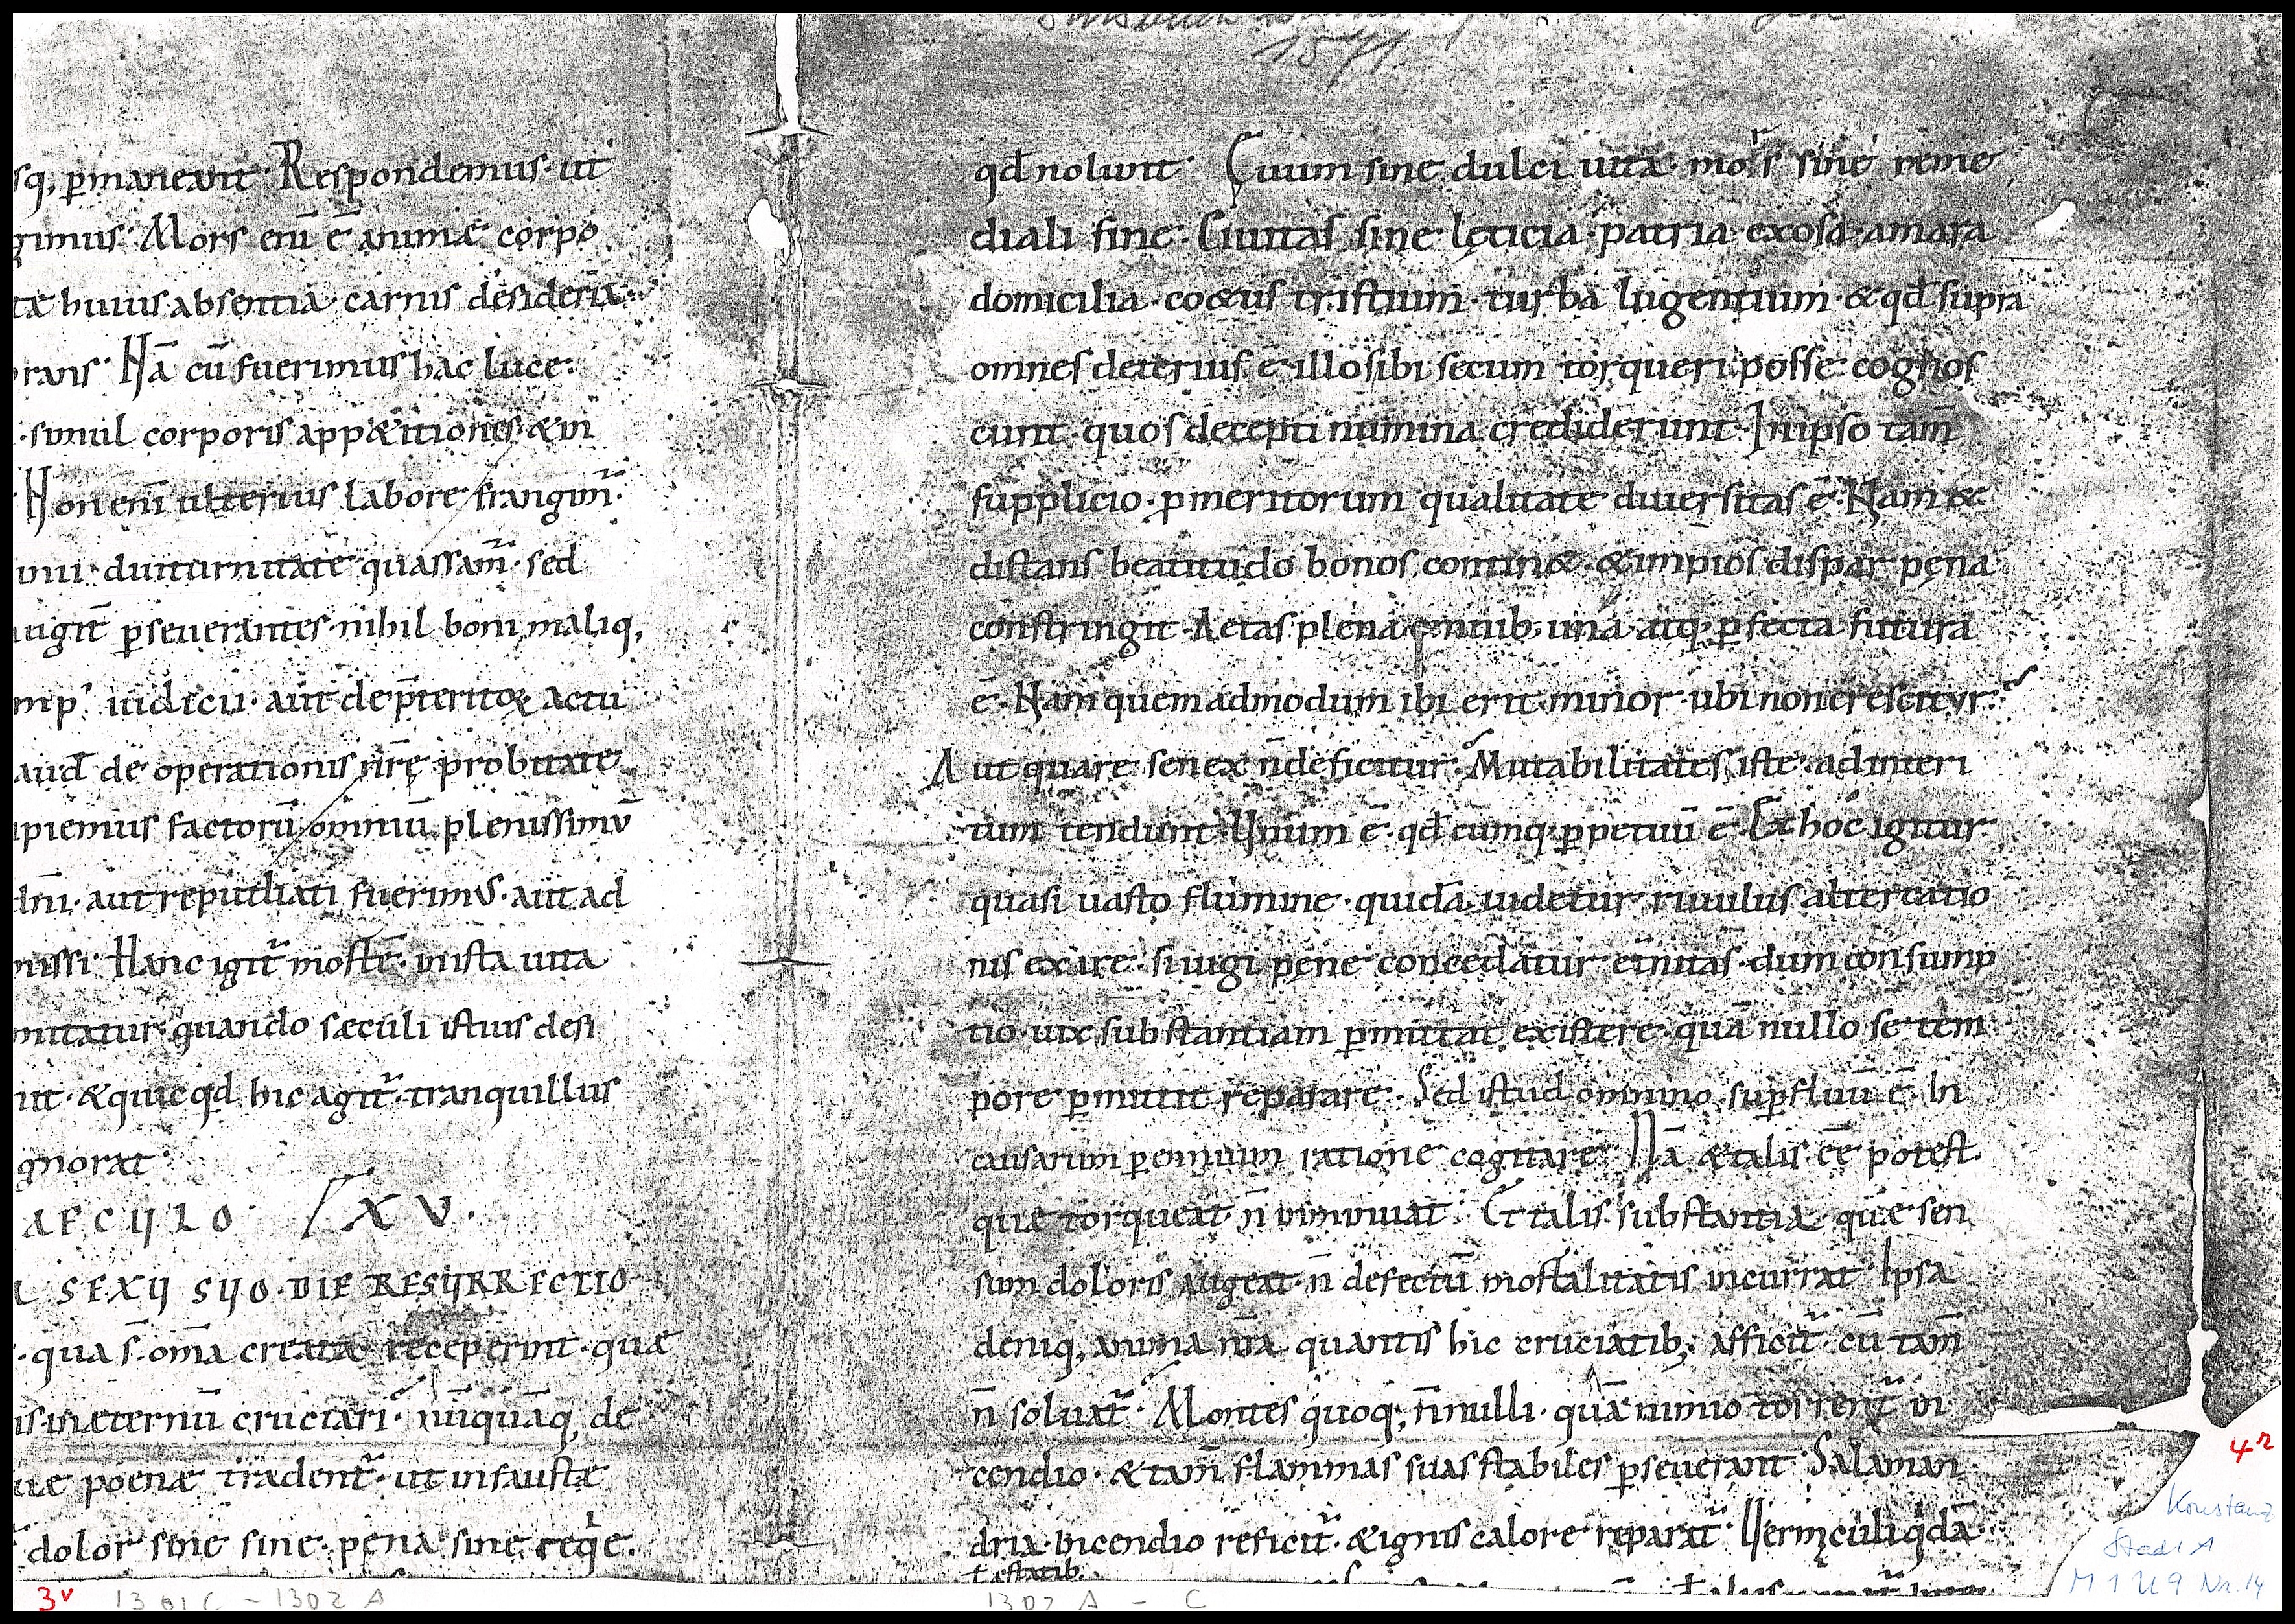 1571
sq, p̄maneant · Respondemus · ut
gimus · Mors eni̅ ē animæ corpo
tæ huius absentia · carnis desideria ·
rans · Nā cū fuerimus hac luce ·
· simul corporis app&itiones & in
· Non eni̅ ulterius labore frangim̃ ·
diuturnitate quassam̃ · sed
p̄seuerantes · nihil boni maliq,
iudicii · aut de p̄teritoꝝ actu
de operationis nr̄ę probitate
ipiemus factorū omniū plenissimū
dn̄i · aut repudiati fuerimus · aut ad
missi · Hanc igit̃ mortē · in ista uita
quando sæculi istius desi
& quicqd̄ hic agit̃ · tranquillus
gnorat ·
AECULO · XV ·
SEXU SUO · DIE RESURRECTIO
· qua s̄ om̄a creata receperint · quæ
is · inæternū cruciari · nūquāq, de
poenæ tradent̃ · ut infaustæ
dolor sine fine · pena sine reqͥe ·
3v 1301 C – 1302 A
qd̄ nolunt · Cuum sine dulci uita · mors sine reme
diali fine · Ciuitas sine lęticia · patria exosa · amara
domicilia · co&us tristium · turba lugentium · & qd̄ supra
omnes deterius ē · illos ibi secum torqueri posse cognos
cunt · quos decepti numina crediderunt · In ipso tam̄
supplicio · p̄ meritorum qualitate diuersitas ē · Nam &
distans beatitudo bonos contin& · & impios dispar pęna
constringit · Aetas plena omnib; una atq; p̄fecta futura
ē · Nam quemadmodum ibi erit minor · ubi non crescitur ·
Aut quare senex n̄ deficitur · Mutabilitates istę · ad interi
tum tendunt · Unum ē · qd̄cumq; p̄petuū ē · Et hoc igitur
quasi uasto flumine · quidā uidetur riuulus altercatio
nis exire · si iugi pęnę concedatur et̄nitas · dum consump
tio · uix substantiam p̄mittat existere · quā nullo se tem
pore p̄mittit reparare · Sed istud omnino sup̄fluū ē · In
causarum p̄ennium ratione cogitare · Nā & talis ēē potest
quæ torqueat · n̄ inminuat · Et talis substantia quæ sen
sum doloris augeat · n̄ defectū mortalitatis incurrat · Ipsa
deniq, anima nr̄a quantis hic cruciatib; afficit̃ · cū tam̄
n̄ soluat̃ · Montes quoq; n̄nulli · quāuis nimio torrent̃ in
cendio · & tam̄ flammas suas stabiles p̄seuerant · Salaman
dria · incendio reficit̃ · & ignis calore reparat̃ · Uermiculi qͥdā
tęstatib;
1302 A – C
4r
Konstanz
StadtA